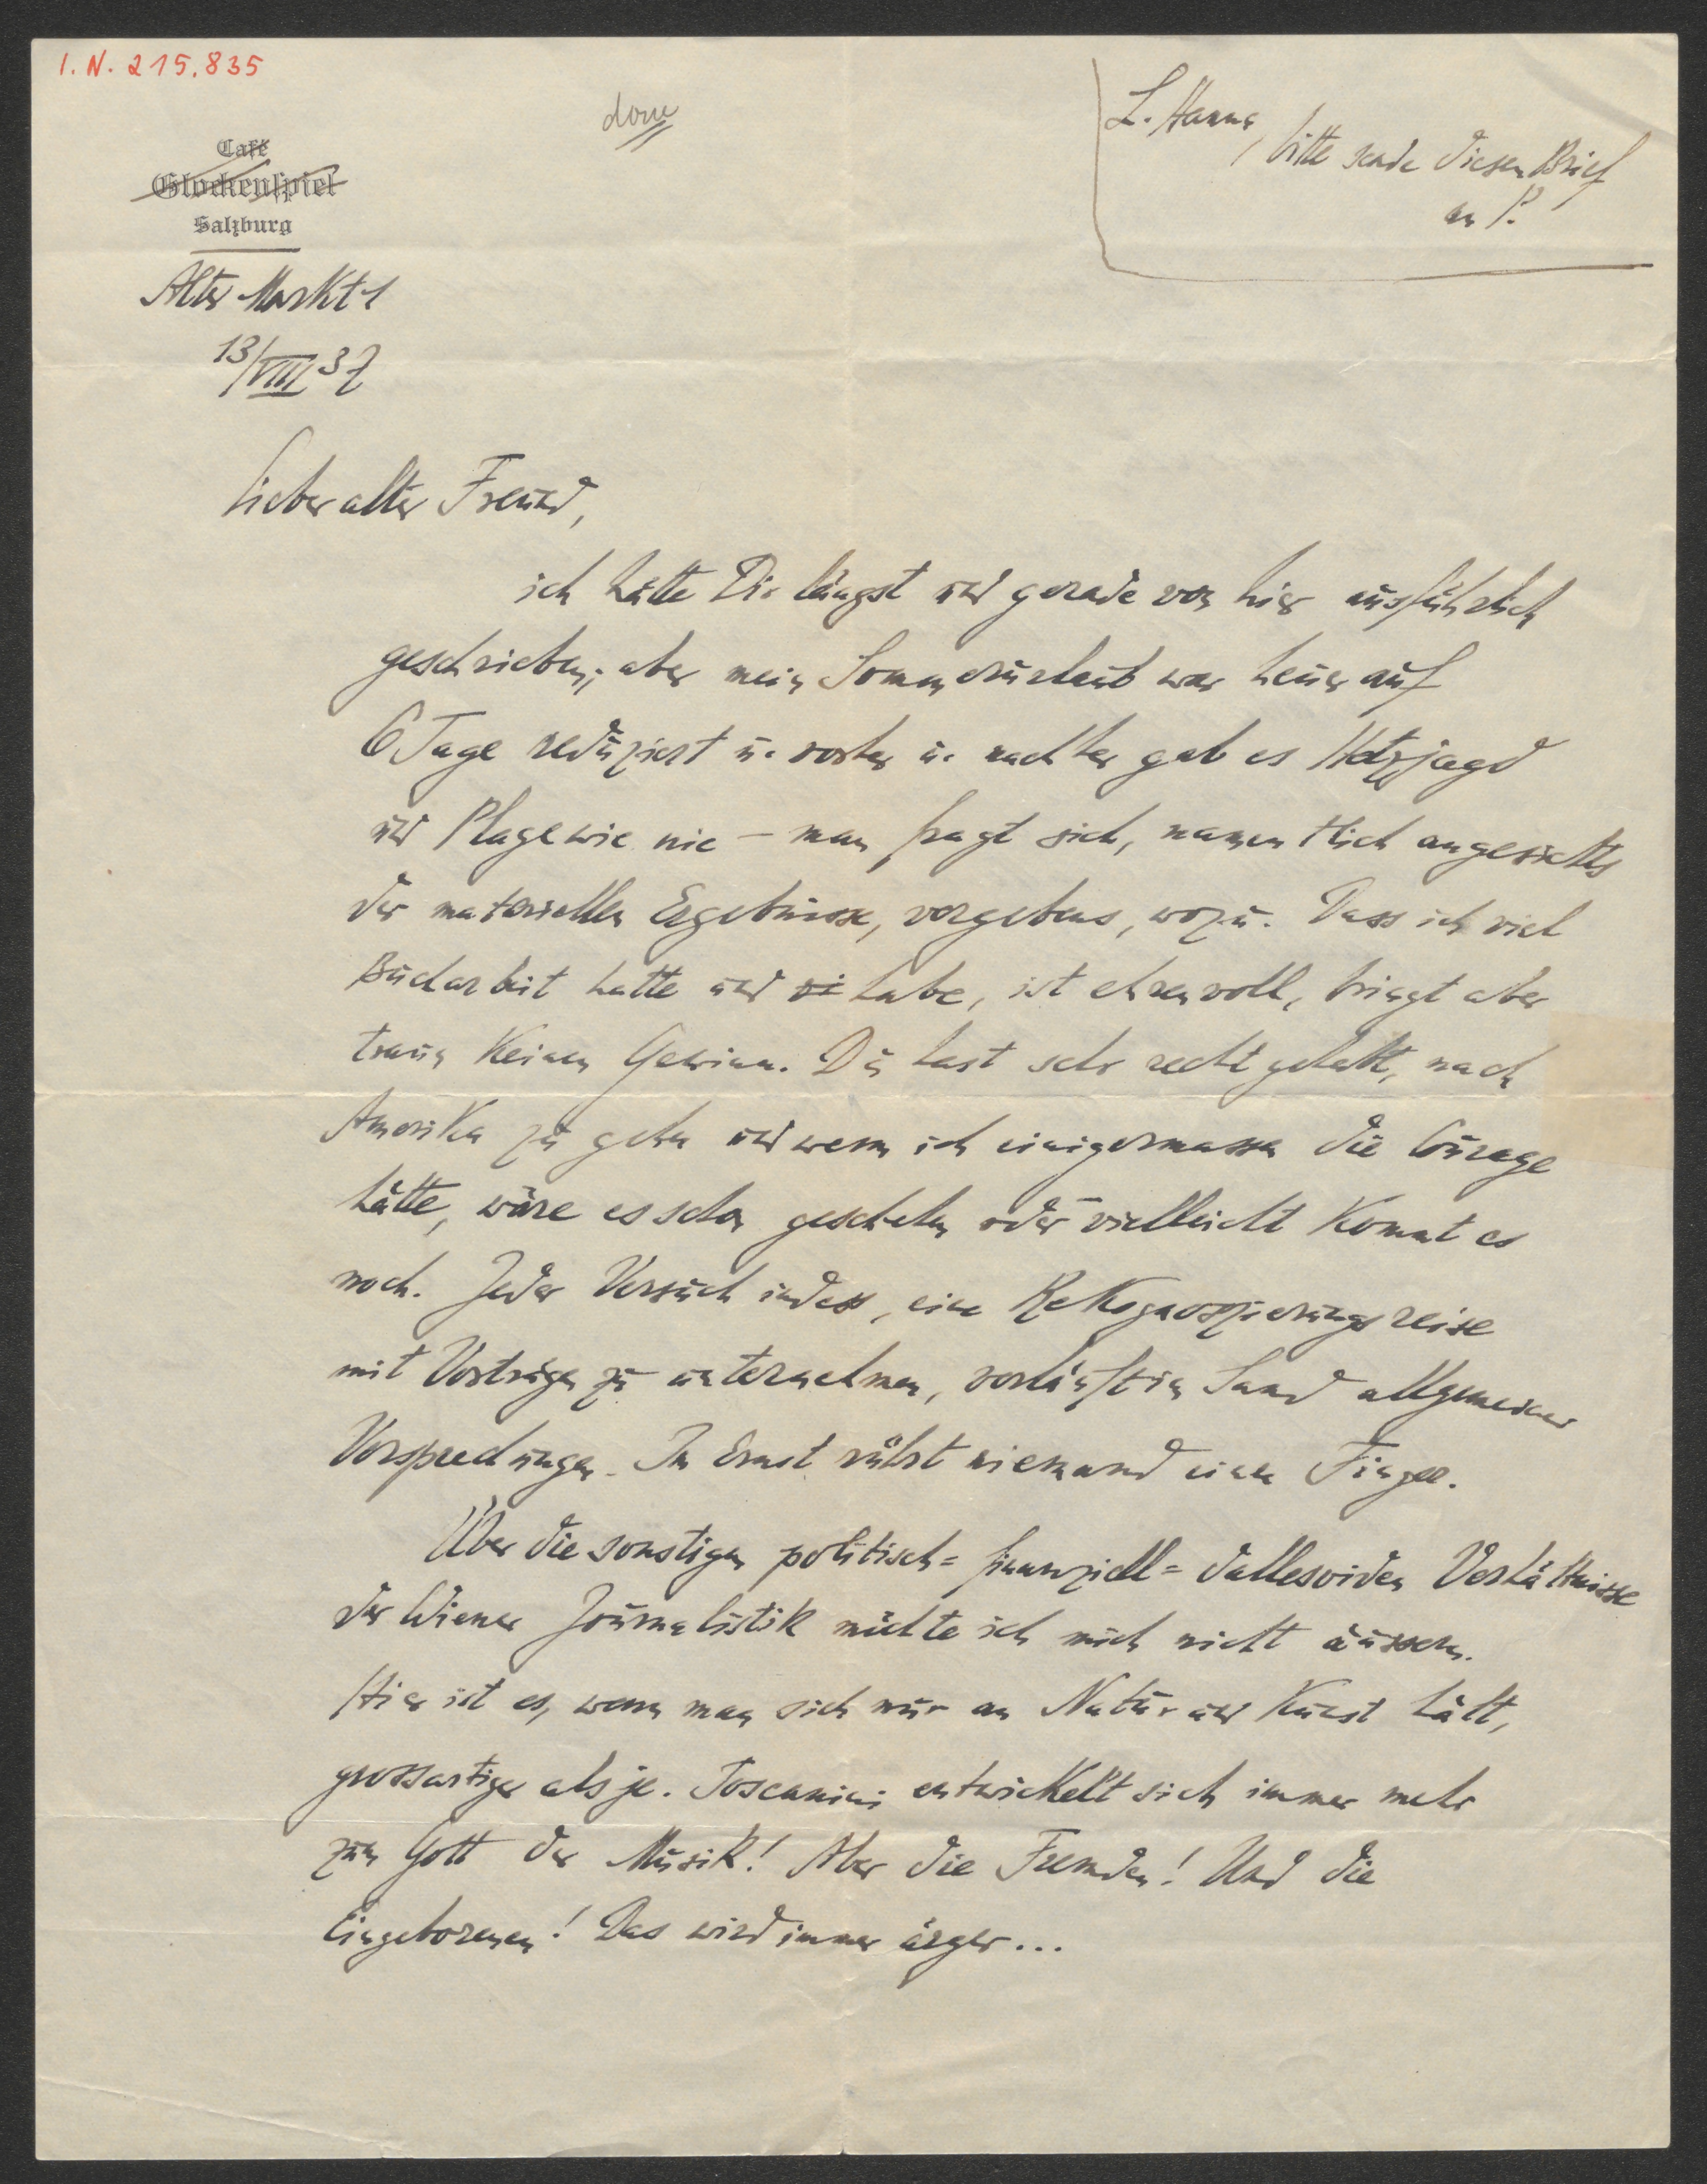 I. N. 215.835
done
L. Hanna,
bitte sende diesen Brief
an P.
Café
Glockenspiel
Salzburg
Alter Markt 1
13/VIII 37
Lieber alter Freund,
ich hätte Dir längst und gerade von hier ausführlich
geschrieben; aber mein Sommerurlaub war heuer auf
6 Tage reduziert u. vorher u. nachher gab es Hetzjagd
und Plage wie nie – man fragt sich, namentlich angesichts
der materiellen Ergebnisse, vergebens, wozu. Dass ich viel
Bucharbeit hatte und vi habe, ist ehrenvoll, bringt aber
traun keinen Gewinn. Du hast sehr recht gehabt, nach
Amerika zu gehn und wenn ich einigermassen die Courage
hätte, wäre es schon geschehn oder vielleicht kommt es
noch. Jeder Versuch indess, eine Rekognoszierungsreise
mit Vorträgen zu unternehmen, verläuft in Sand allgemeiner
Versprechungen. Im Ernst rührt niemand einen Finger.
Über die sonstigen politisch= finanziell= dallesoiden Verhältnisse
der Wiener Journalistik möchte ich mich nicht äussern.
Hier ist es, wenn man sich nur an Natur und Kunst hält,
grossartiger als je. Toscanini entwickelt sich immer mehr
zum Gott der Musik! Aber die Fremden! Und die
Eingeborenen! Das wird immer ärger...